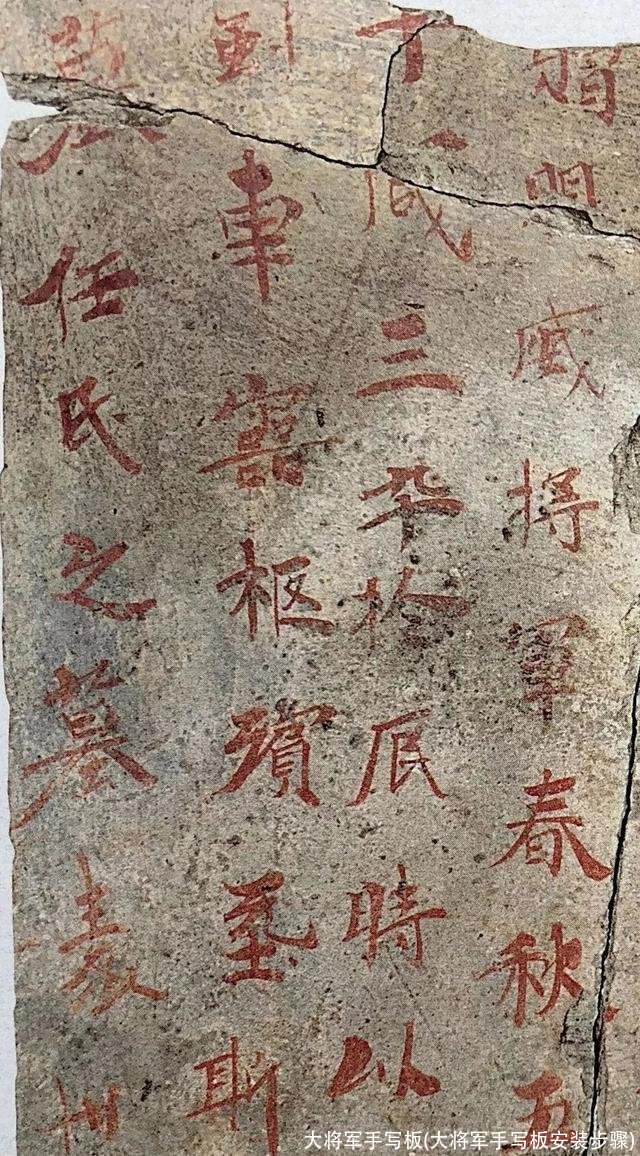 明威將軍春秋五
十三卒於辰時以
車柩殯葬斯
任氏之墓表
大将军手写板(大将军手写板安装步骤)